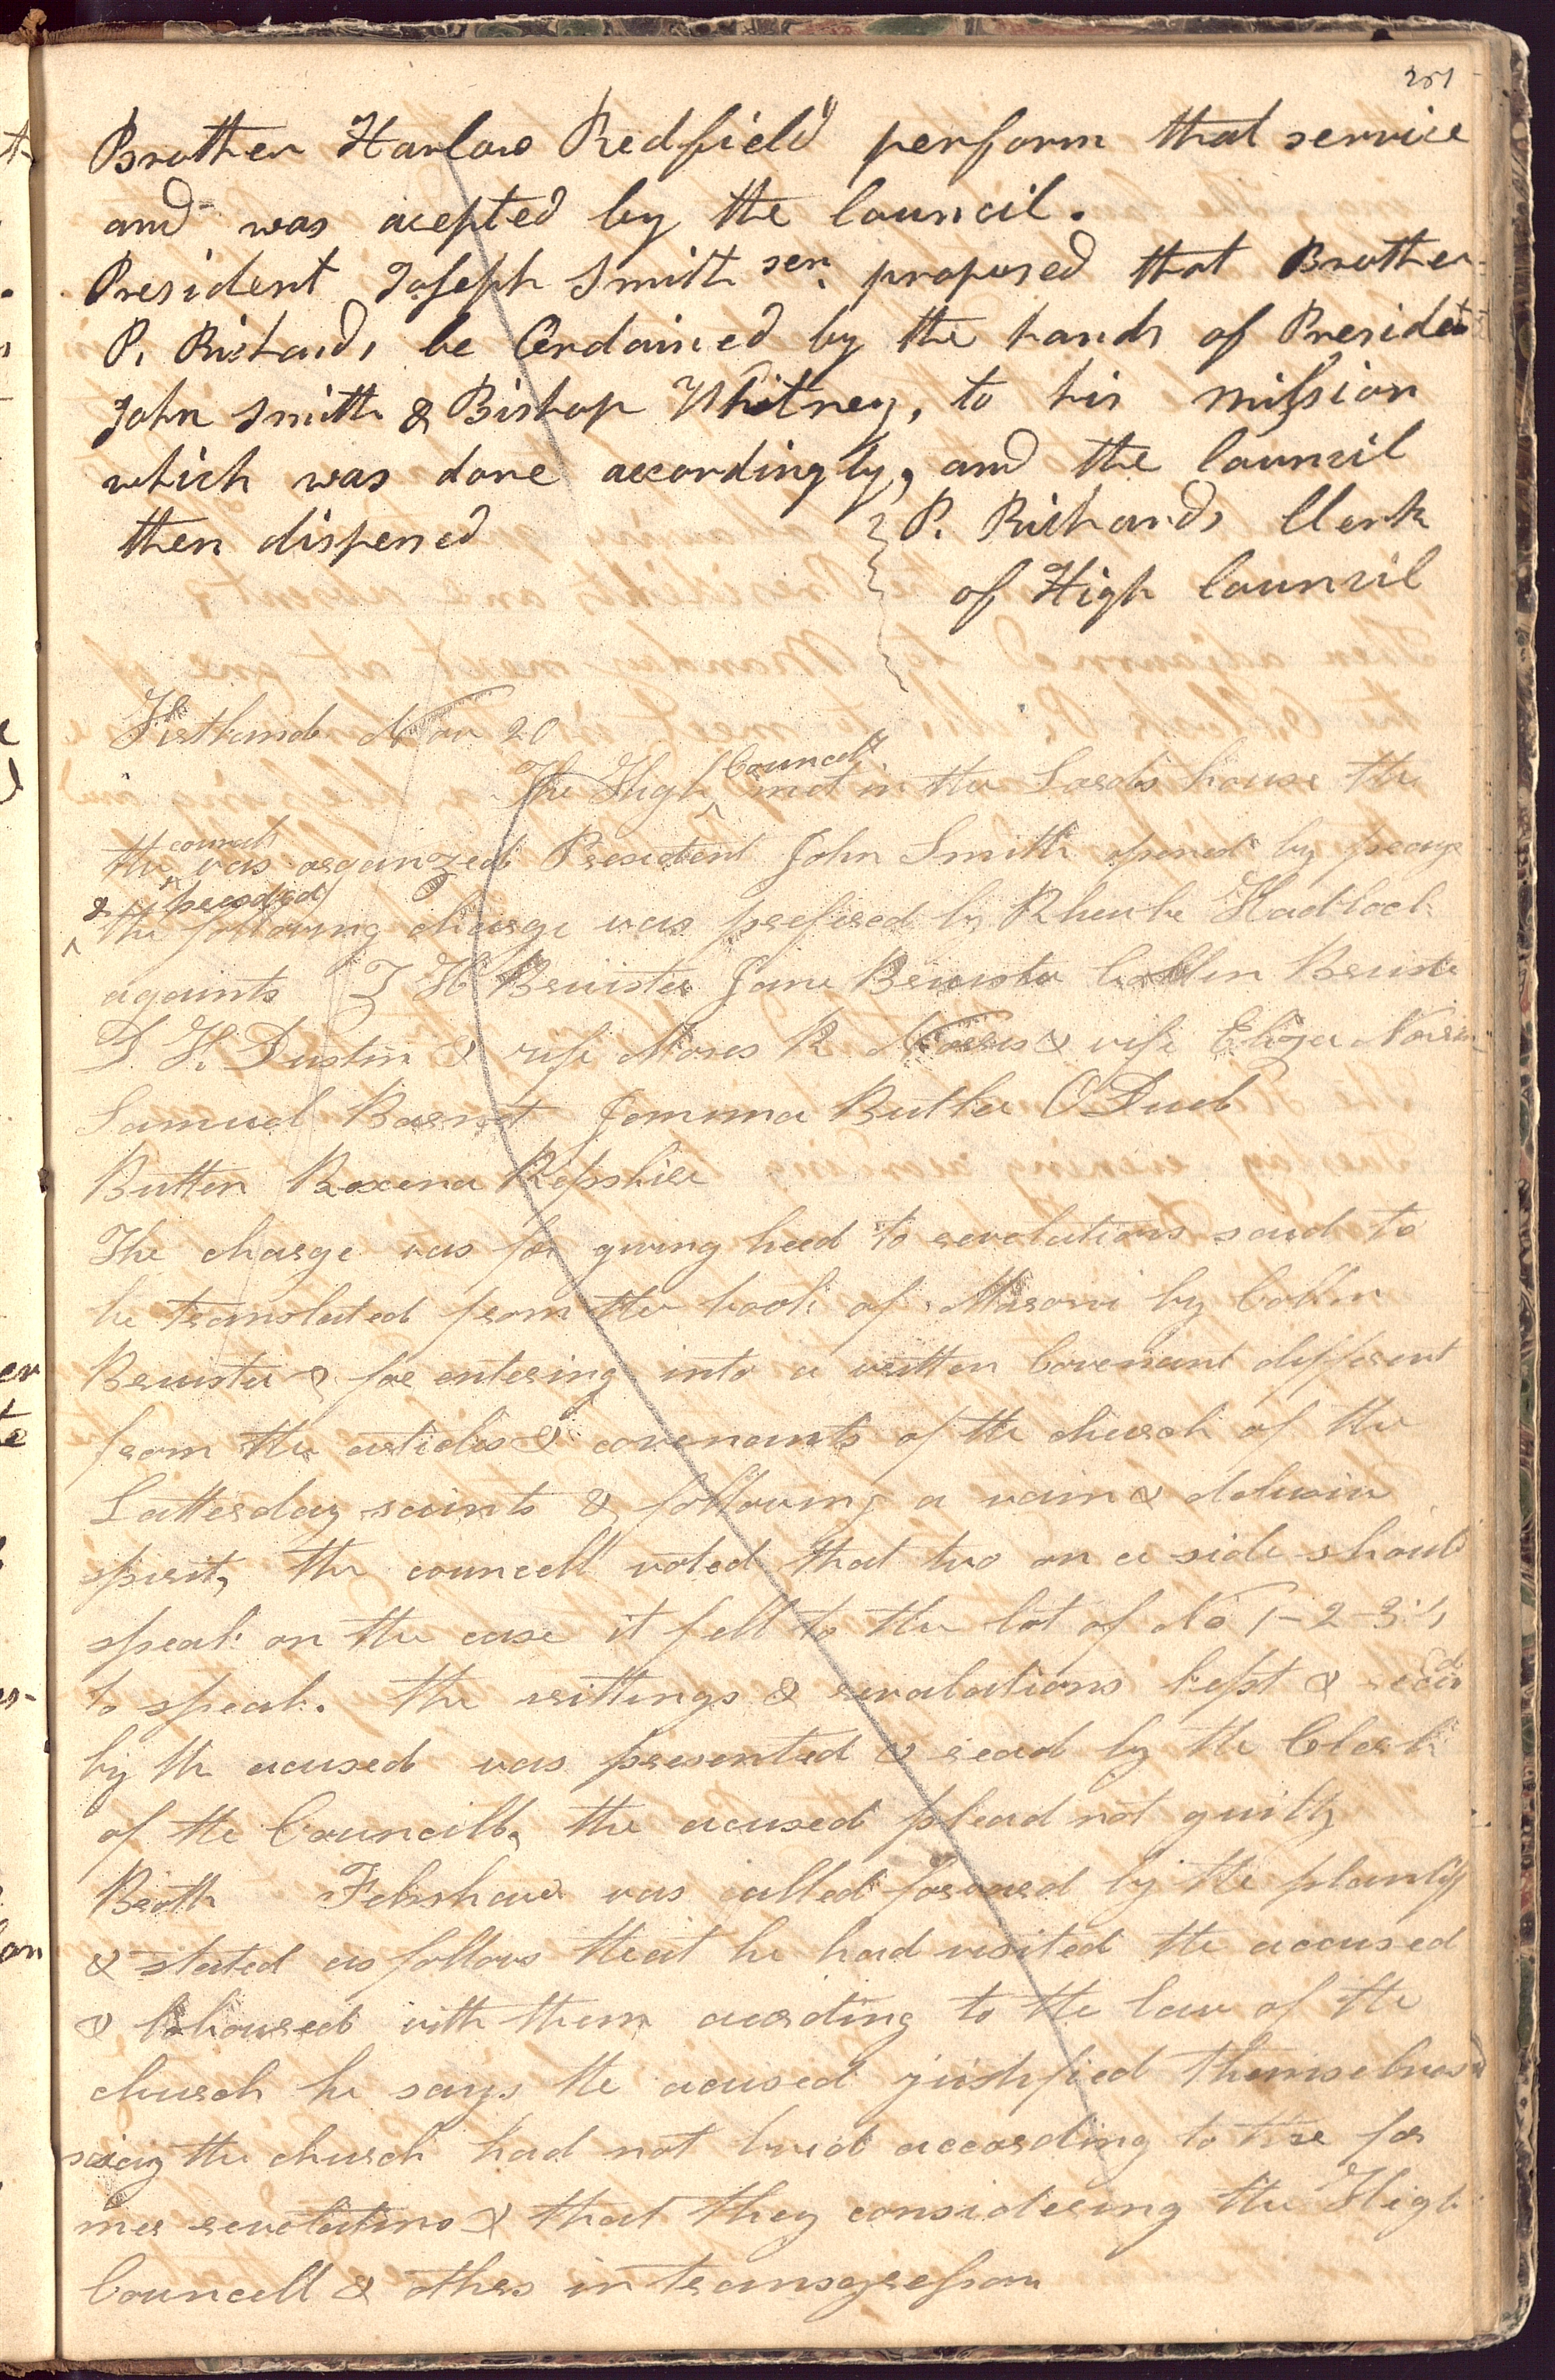 251
Brother Harlow Redfield perform that service
and was acepted by the Council.
President Joseph Smith sen. proposed that Brother
P. Richards be Ordained by the hands of Presidet
John Smith & Bishop Whitney, to his mission
which was done accordingly, and the Council
then dispersed P. Richards Clerk
of High Council
Kirtland Nov 20
The High Councill met in the Lords house the
the council was organized President John Smith opened by prayr
& presided the following charge was prefered by Rheube Hadlock
againts Z H Bruister Jane Bruister Collin Bruister
D. H. Dustin & wife Moses R Norris & wife Eliza Norris
Samuel Barnet Jemima Butler
Butten Roxena Repshier
The charge was for giving heed to revelations said to
be translated from the book of Maroni by Collin
Bruister & for entering into a written Covenant different
from the articles & covenants of the church of the
Latterday saints & following a vain & delusive
spirit, the councell voted that two on a side should
speak on the case it fell to the lot of No 1-2-3-4
to speak. the writtings & revalations kept & read
by the acused was presented & read by the Clerk
of the Councill, the acused plead not guilty
Broth Felshaw was called forward by the plantif
& stated as follows that he had visited the accused
& laboured with them acording to the law of the
church he says the acused justified themselves
saing the church had not lived according to the for
mer revolations & that they considering the High
Councell & othrs in transgression